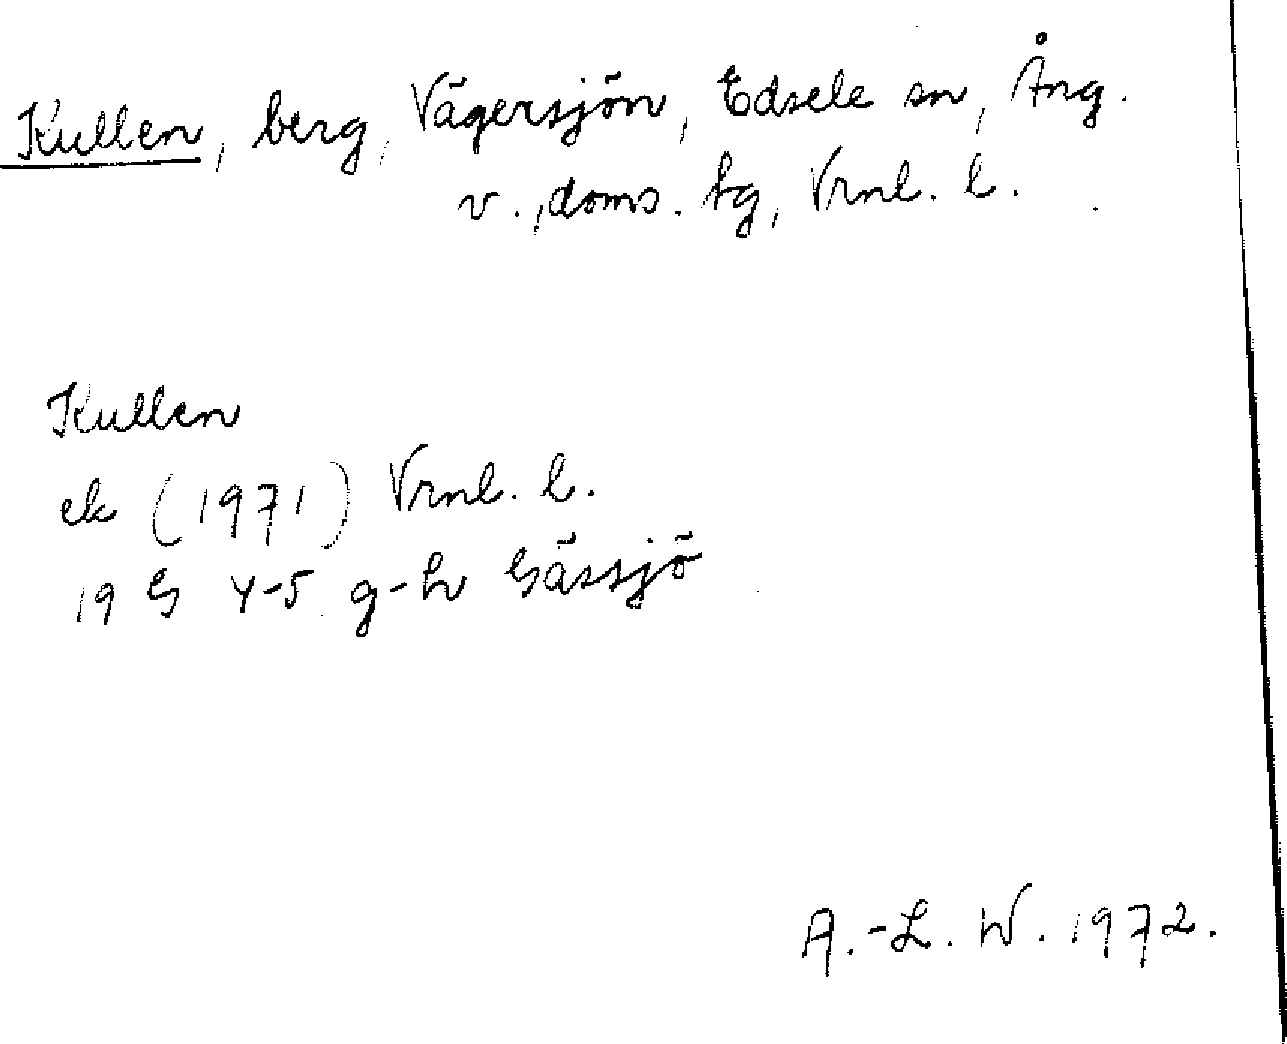 Kullen, berg, Vägersjön, Edsele sn, Ång.
v., doms. tg, Vrnl. l.
Kullen
ek (1971) Vrnl. l.
19 G 4-5 g-h Gåssjö
A.-L. W. 1972.